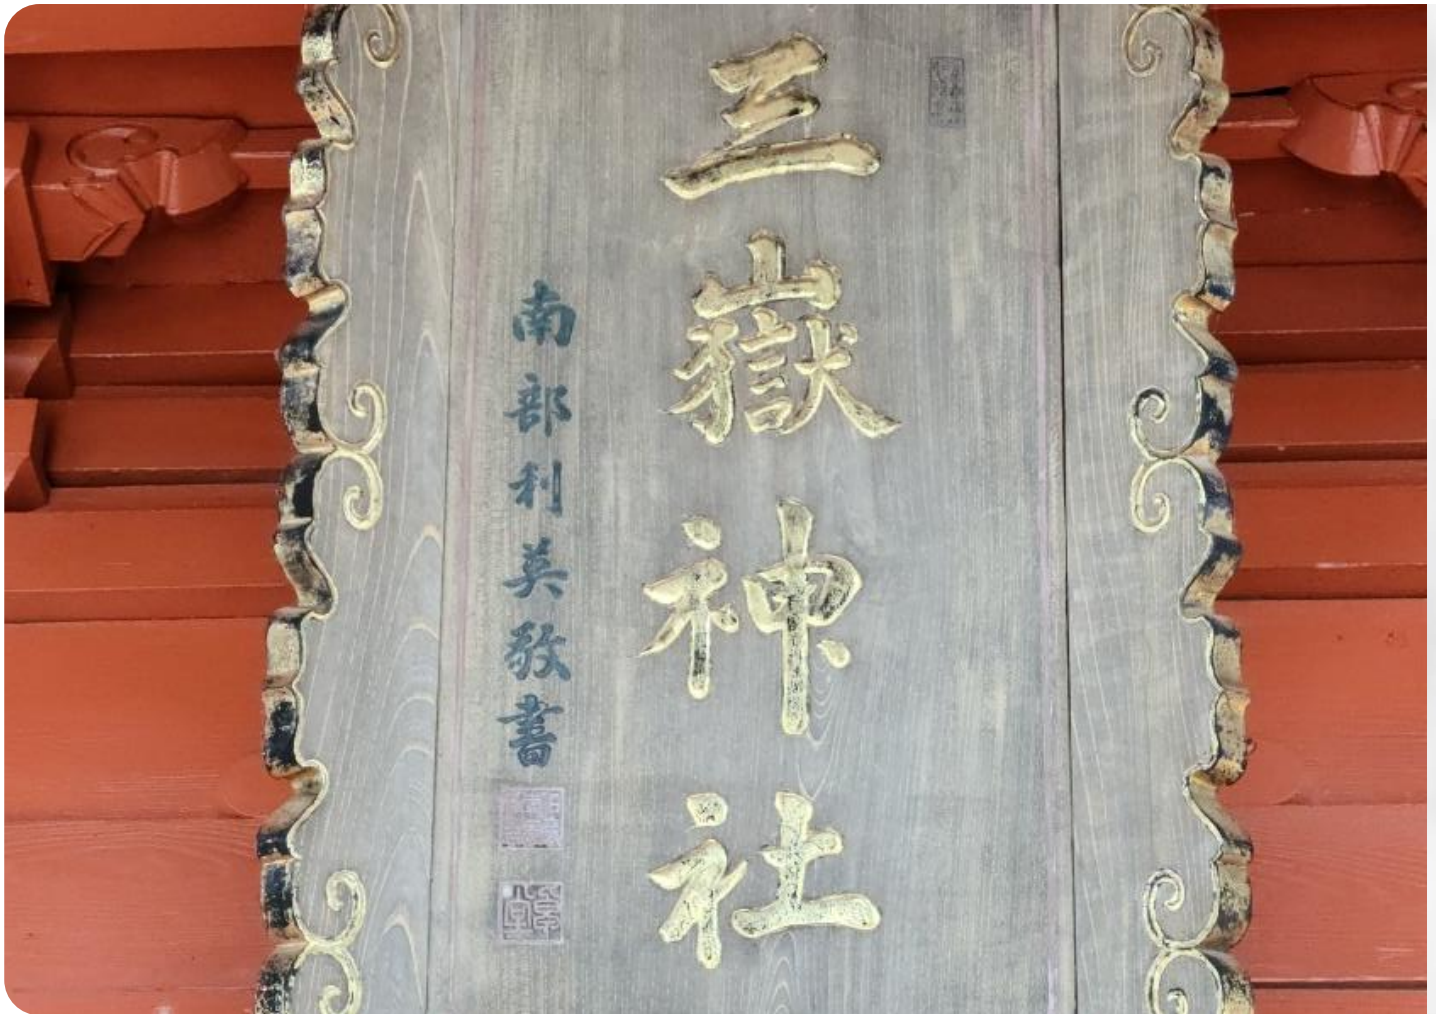 三嶽神社
南部利英敬書